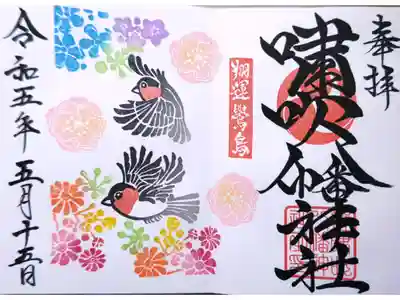 奉拝
嘯吹八幡神社
翔運鷽鳥
令和五年五月十五日